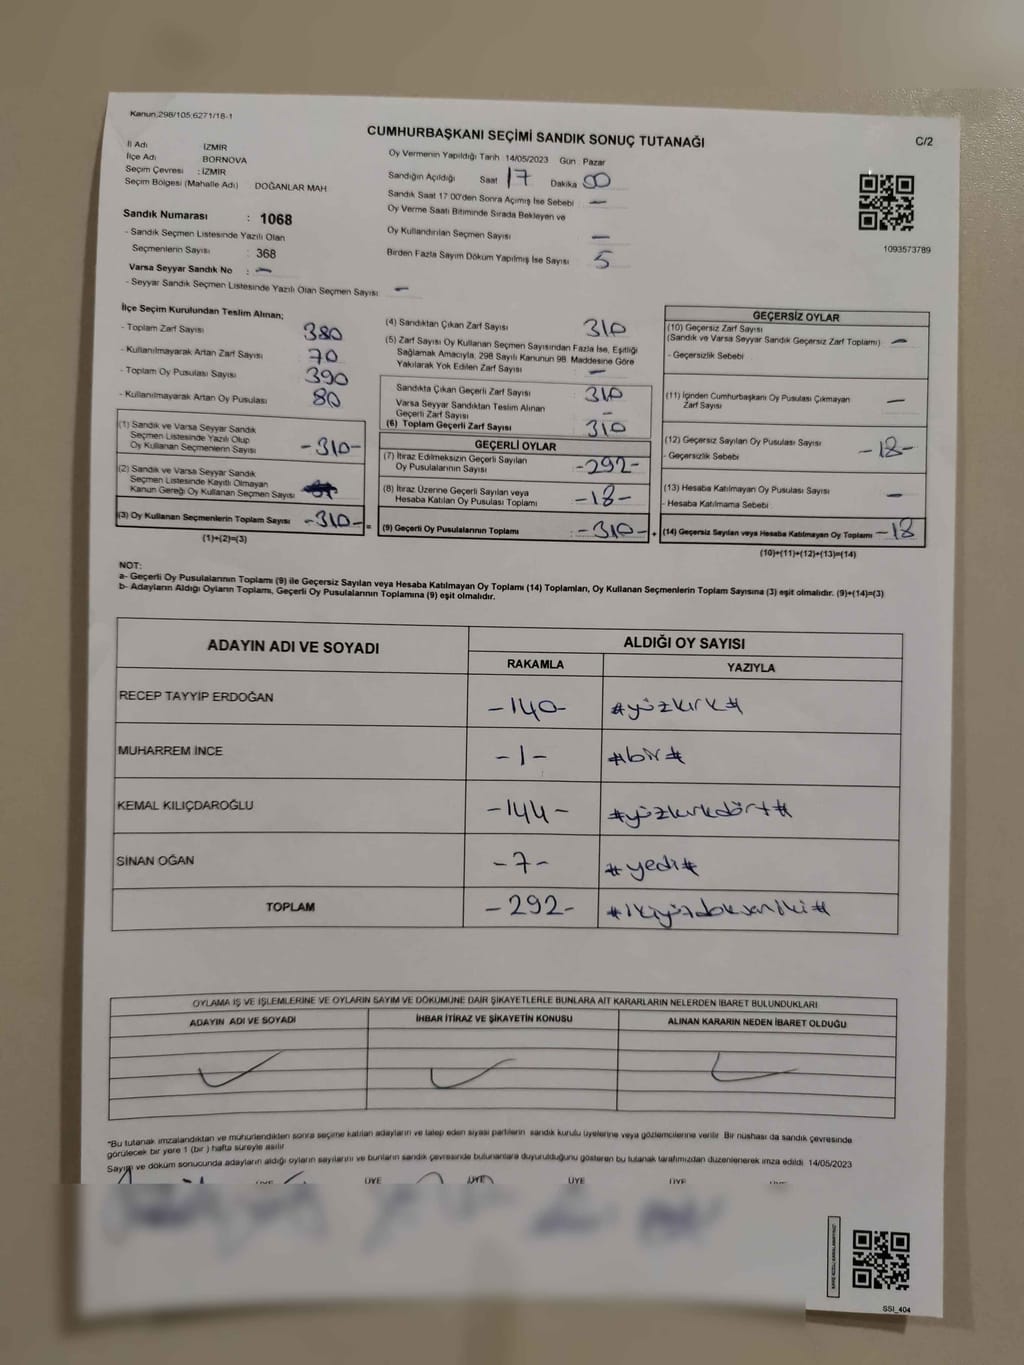 Kanun;298/105;6271/18-1
CUMHURBAŞKANI SEÇİMİ SANDIK SONUÇ TUTANAĞI
C/2
İl Adı İZMİR
İlçe Adı BORNOVA
Seçim Çevresi : İZMİR
Seçim Bölgesi (Mahalle Adı) DOĞANLAR MAH
Sandık Numarası : 1068
- Sandık Seçmen Listesinde Yazılı Olan
Seçmenlerin Sayısı : 368
Varsa Seyyar Sandık No : —
- Seyyar Sandık Seçmen Listesinde Yazılı Olan Seçmen Sayısı —
Oy Vermenin Yapıldığı Tarih 14/05/2023 Gün Pazar
Sandığın Açıldığı Saat 17 Dakika 00
Sandık Saat 17 00'den Sonra Açımış İse Sebebi —
Oy Verme Saati Bitiminde Sırada Bekleyen ve
Oy Kullandırılan Seçmen Sayısı —
Birden Fazla Sayım Döküm Yapılmış İse Sayısı 5
1093573789
İlçe Seçim Kurulundan Teslim Alınan;
- Toplam Zarf Sayısı 380
- Kullanılmayarak Artan Zarf Sayısı 70
- Toplam Oy Pusulası Sayısı 390
- Kullanılmayarak Artan Oy Pusulası 80
(1) Sandık ve Varsa Seyyar Sandık
Seçmen Listesinde Yazılı Olup
Oy Kullanan Seçmenlerin Sayısı -310-
(2) Sandık ve Varsa Seyyar Sandık
Seçmen Listesinde Kayıtlı Olmayan
Kanun Gereği Oy Kullanan Seçmen Sayısı
(3) Oy Kullanan Seçmenlerin Toplam Sayısı -310- =
(1)+(2)=(3)
(4) Sandıktan Çıkan Zarf Sayısı 310
(5) Zarf Sayısı Oy Kullanan Seçmen Sayısından Fazla İse, Eşitliği
Sağlamak Amacıyla, 298 Sayılı Kanunun 98. Maddesine Göre
Yakılarak Yok Edilen Zarf Sayısı —
Sandıkta Çıkan Geçerli Zarf Sayısı 310
Varsa Seyyar Sandıktan Teslim Alınan
Geçerli Zarf Sayısı -
(6) Toplam Geçerli Zarf Sayısı 310
GEÇERLİ OYLAR
(7) İtiraz Edilmeksizin Geçerli Sayılan
Oy Pusulalarının Sayısı -292-
(8) İtiraz Üzerine Geçerli Sayılan veya
Hesaba Katılan Oy Pusulası Toplamı -18-
(9) Geçerli Oy Pusulalarının Toplamı -310- +
GEÇERSİZ OYLAR
(10) Geçersiz Zarf Sayısı
(Sandık ve Varsa Seyyar Sandık Geçersiz Zarf Toplamı) —
- Geçersizlik Sebebi
(11) İçinden Cumhurbaşkanı Oy Pusulası Çıkmayan
Zarf Sayısı —
(12) Geçersiz Sayılan Oy Pusulası Sayısı -18-
- Geçersizlik Sebebi
(13) Hesaba Katılmayan Oy Pusulası Sayısı —
- Hesaba Katılmama Sebebi
(14) Geçersiz Sayılan veya Hesaba Katılmayan Oy Toplamı -18
(10)+(11)+(12)+(13)=(14)
NOT:
a- Geçerli Oy Pusulalarının Toplamı (9) ile Geçersiz Sayılan veya Hesaba Katılmayan Oy Toplamı (14) Toplamları, Oy Kullanan Seçmenlerin Toplam Sayısına (3) eşit olmalıdır. (9)+(14)=(3)
b- Adayların Aldığı Oyların Toplamı, Geçerli Oy Pusulalarının Toplamına (9) eşit olmalıdır.
ADAYIN ADI VE SOYADI ALDIĞI OY SAYISI
RAKAMLA YAZIYLA
RECEP TAYYİP ERDOĞAN -140- #yüzkırk#
MUHARREM İNCE -1- #bir#
KEMAL KILIÇDAROĞLU -144- #yüzkırkdört#
SİNAN OĞAN -7- #yedi#
TOPLAM -292- #ikiyüzdoksaniki#
OYLAMA İŞ VE İŞLEMLERİNE VE OYLARIN SAYIM VE DÖKÜMÜNE DAİR ŞİKAYETLERLE BUNLARA AİT KARARLARIN NELERDEN İBARET BULUNDUKLARI
ADAYIN ADI VE SOYADI İHBAR İTİRAZ VE ŞİKAYETİN KONUSU ALINAN KARARIN NEDEN İBARET OLDUĞU
*Bu tutanak imzalandıktan ve mühürlendikten sonra seçime katılan adayların ve talep eden siyasi partilerin sandık kurulu üyelerine veya gözlemcilerine verilir. Bir nüshası da sandık çevresinde
görülecek bir yere 1 (bir) hafta süreyle asılır
Sayım ve döküm sonucunda adayların aldığı oyların sayılarını ve bunların sandık çevresinde bulunanlara duyurulduğunu gösteren bu tutanak tarafımızdan düzenlenerek imza edildi 14/05/2023
ÜYE ÜYE ÜYE ÜYE ÜYE
SSI_404